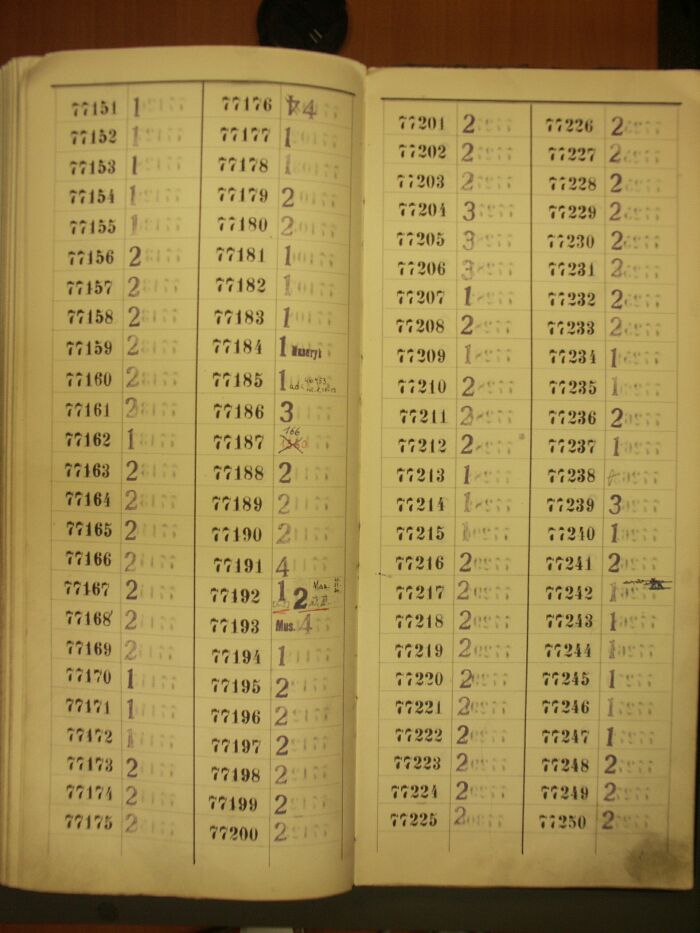 77151 1
77152 1
77153 1
77154 1
77155 1
77156 2
77157 2
77158 2
77159 2
77160 2
77161 2
77162 1
77163 2
77164 2
77165 2
77166 2
77167 2
77168 2
77169 2
77170 1
77171 1
77172 1
77173 2
77174 2
77175 2
77176 4
77177 1
77178 1
77179 2
77180 2
77181 1
77182 1
77183 1
77184 1
77185 1
77186 3
77187 166
77188 2
77189 2
77190 2
77191 4
77192 1 2
77193 Mus. 4
77194 1
77195 2
77196 2
77197 2
77198 2
77199 2
77200 2
77201 2
77202 2
77203 2
77204 3
77205 3
77206 3
77207 1
77208 2
77209 1
77210 2
77211 2
77212 2
77213 1
77214 1
77215 1
77216 2
77217 2
77218 2
77219 2
77220 2
77221 2
77222 2
77223 2
77224 2
77225 2
77226 2
77227 2
77228 2
77229 2
77230 2
77231 2
77232 2
77233 2
77234 1
77235 1
77236 2
77237 1
77238
77239 3
77240 1
77241 2
77242 1
77243 1
77244 1
77245 1
77246 1
77247 1
77248 2
77249 2
77250 2